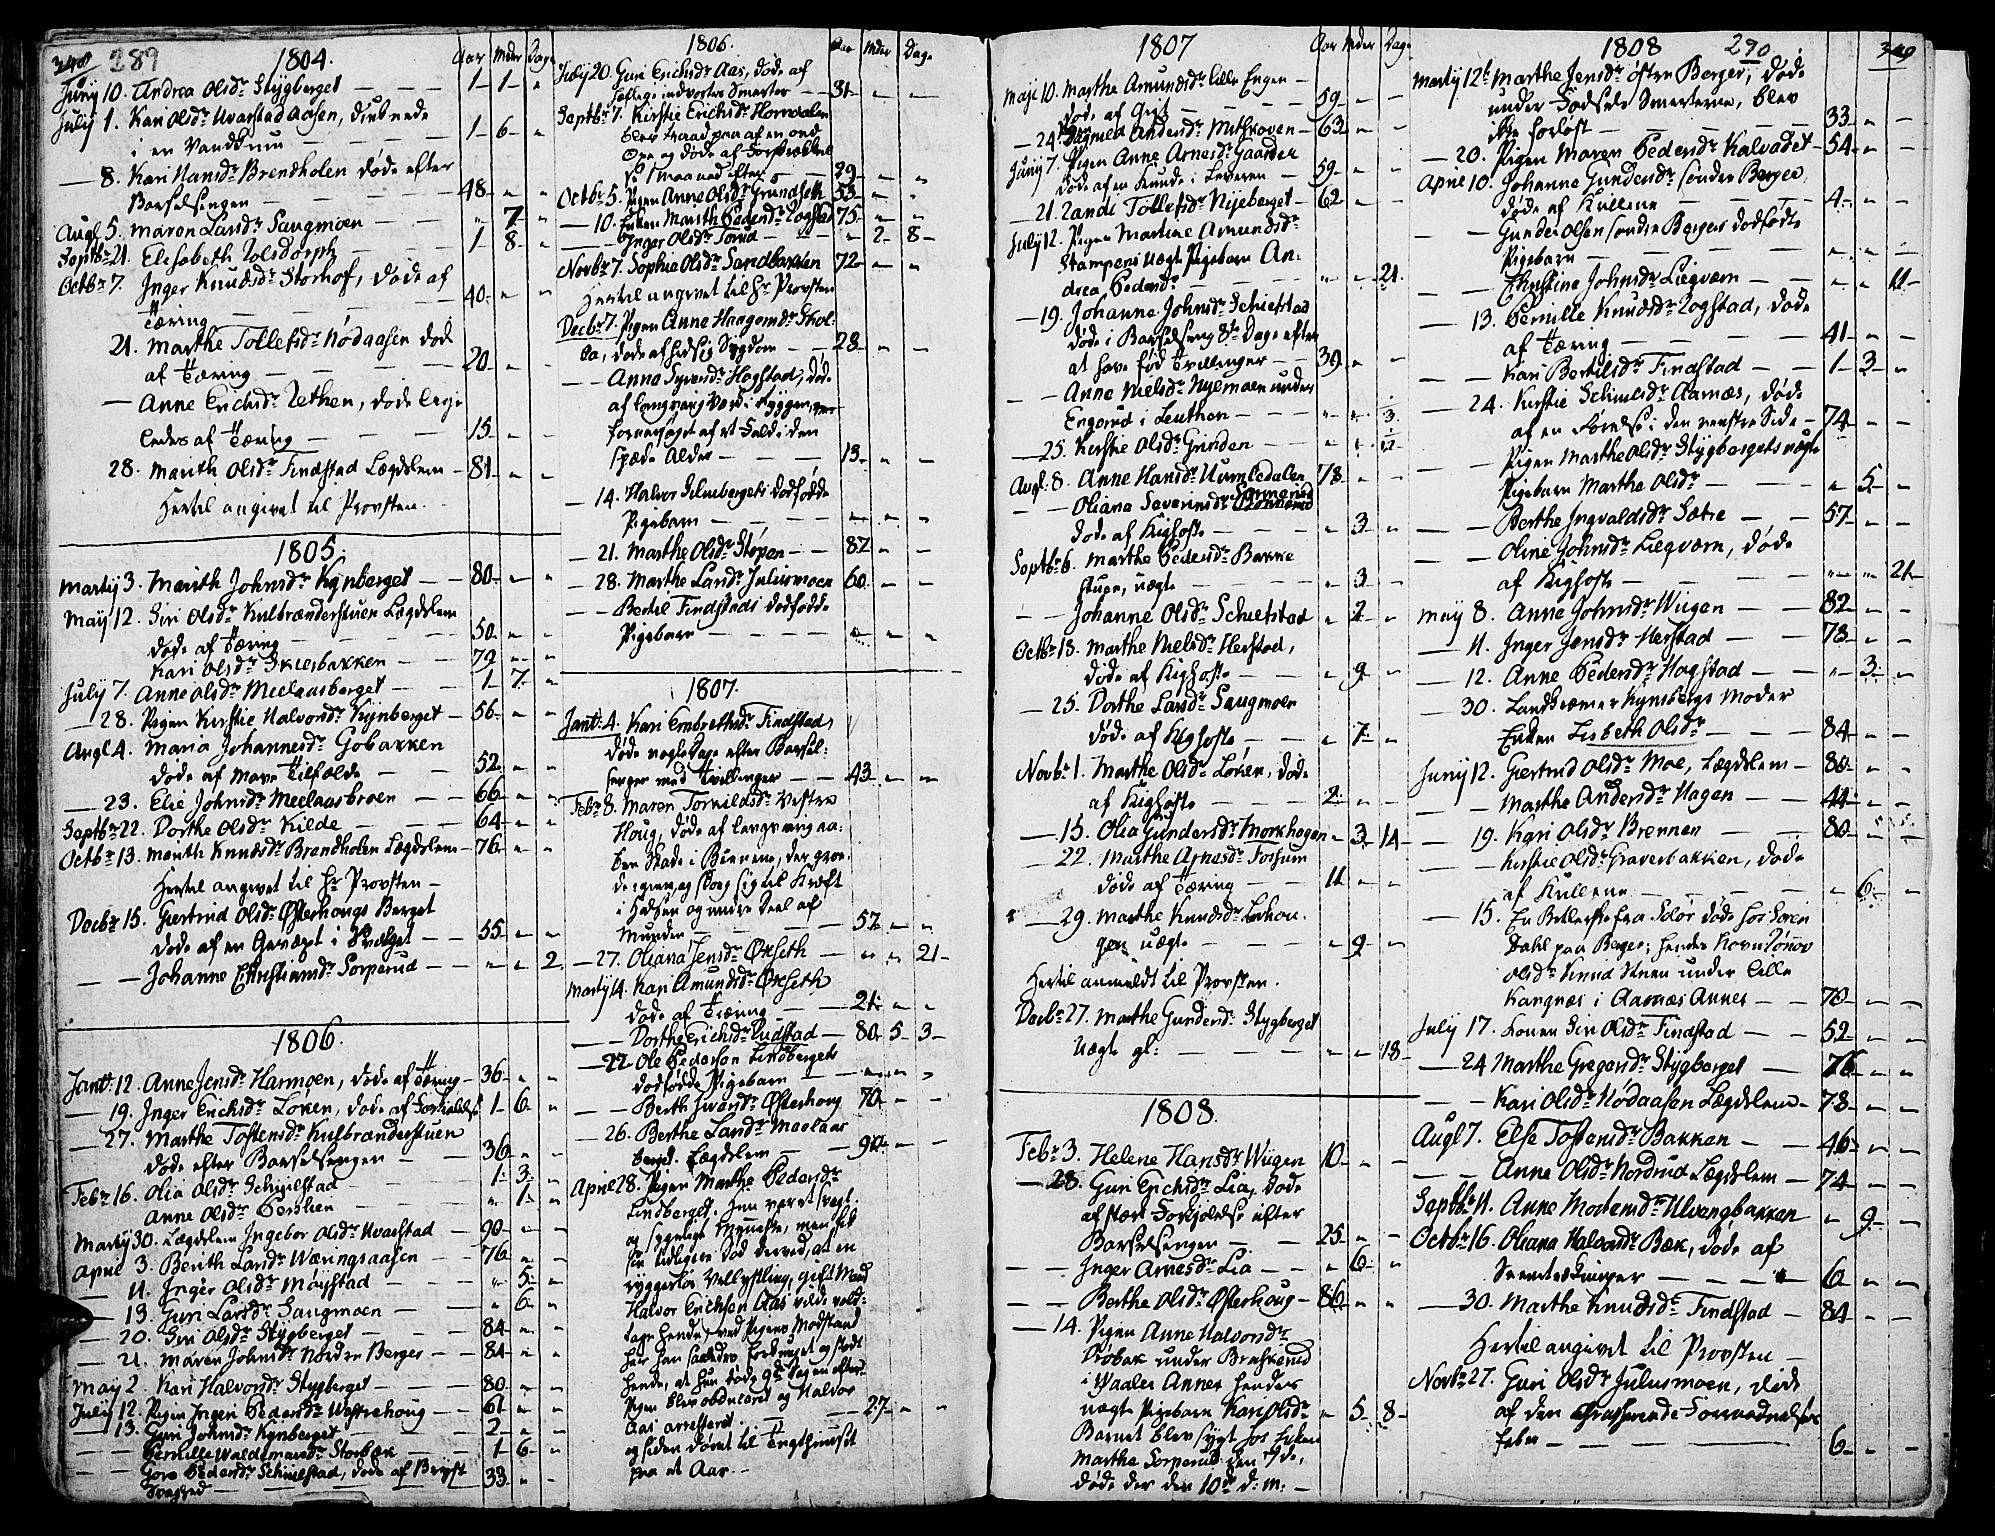 348 289
1804. Aar Mdr Dage
Junij 10. Andrea Olsdr. Stygberget — 1 — 1 — "
Julij 1. Kari Olsdr. Kvarstad Aasen, druknede
i en Vandkum — 1 — 6 — "
— 8. Kari Hansdr. Brendholen døde efter
Barselsengen — 48 — " — "
Augl. 5. Maren Larsdr. Saugmoen — " 7 — "
Septbr. 21. Elisabeth Tolsdorph — 1 8 — "
Octbr. 7. Inger Knudsdr. Storhof, døde af
Tæring — 40 — " — "
21. Marthe Tollefsdr. Nødaasen død
af Tæring — 20 — " — "
— Anne Erichsdr. Lethen, døde lige
ledes af Tæring — 15 — " — "
28. Marith Olsdr. Findstad Lægdslem — 81 — " — "
Hertil angivet til Provsten.
1805.
Martij 3. Marith Johnsdr. Kynberget — 80 — " — "
Maij 12. Siri Olsdr. Kulbrænderstuen Lægdslem
døde af Tæring — 50 — " — "
Kari Olsdr. Skiesbakken — 79 — " — "
Julij 7. Anne Olsdr. Meelaasberget — 1 — 7 — "
— 28. Pigen Kirstie Halvorsdr. Kynberget — 56 — " — "
Augl. 4. Maria Johannesdr. Gobakken
døde af Mave Tilfælde — 52 — " — "
— 23. Elie Johnsdr. Meelaasbroen — 66 — " — "
Septbr. 22. Dorthe Olsdr. Kilde — 64 — " — "
Octbr. 13. Marith Knudsdr. Brendholen Lægdslem — 76 — " — "
Hertil angivet til Hr. Provsten —
Decbr. 15. Giertrud Olsdr. Østerhougs Berget
døde af en Gevæxt i Svælget — 55 — " — "
— — Johanne Christiansdr. Sorperud — " — " 2.
1806.
Jantl. 12. Anne Jensdr. Harmoen, døde af Tæring — 36 — " — "
— 19. Inger Erichsdr. Løken, døde af Forkiølelse 1 — 6 — "
— 27. Marthe Tostensdr. Kulbrænderstuen
døde efter Barselsengen — 36 — " — "
Febr. 16. Olia Olsdr. Schiulstad — 1 — 3 — "
Anne Olsdr. Berslien — " 1 — "
Martij 30. Lægdslem Ingebor Olsdr. Kvarstad — 90 — " — "
April 3. Berith Larsdr. Wæringsaasen — 76 " — "
— 11. Inger Olsdr. Møystad — " 5 — "
— 13. Guri Larsdr. Saugmoen — " 6 — "
— 20. Siri Olsdr. Stygberget — 84 — " — "
— 21. Maren Johnsdr. Nordre Berger — 84 — " — "
Maij 2. Kari Halvorsdr. Stygberget — 80 — " — "
Julij 12. Pigen Ingeri Pedersdr. Westrehoug — 61 — " — "
— 13. Guri Johnsdr. Kynberget — 2 — " — "
— — Pernille Waldemarsdr. Storbæk — 1 — 6 — "
— — Goro Pedersdr. Schiulstad, døde af Bryst
Svaghed — 33 — " — "
1806. Aar Mdr Dage
Julij 20. Guri Erichsdr. Aas, døde af
heftige indvortes Smerter — 31 — " — "
Septbr. 7. Kirstie Erichsdr. Horndalen
blev traad paa af en ond
Oxe og døde af Forskrækkel
se 1 Maaned efter — 29 — " — "
Octbr. 5. Pigen Anne Olsdr. Grundseth 53 — " — "
— 10. Enken Marith Pedersdr. Logstad 75 — " — "
— — Inger Olsdr. Torud — " — 2 — 8 —
Novbr. 7. Sophie Olsdr. Sandbakken 72 — " — "
Hertil angivet til Hr. Provsten
Decbr. 7. Pigen Anne Haagensdr. Skol-
la, døde af hidsig Sygdom — 28 — " — "
— — Anna Syversdr. Hogstad, døde
af langvarig Værk i Ryggen,
foraarsaget af et Fald i den
spæde Alder — 13 — " — "
— 14. Halvor Holmbergets dødfødde
Pigebarn — " — " — "
— 21. Marthe Olsdr. Støpen — 82 — " — "
— 28. Marthe Larsdr. Juliusmoen 60 — " — "
— — Bertil Findstads dødfødde
Pigebarn — " — " — "
1807.
Jantl. 4. Kari Embrethsdr. Findstad,
døde nogle Dage efter Barsel-
senger med Tvillinger — 43 — " — "
Febr. 8. Maren Torkildsdr. Vestre
Houg, døde af langvarig aa-
ben Skade i Benene, der groe-
de igien, og slog sig til Kræft
i Halsen og andre Deel af
Munden — 52 — " — "
— 27. Oliana Jensdr. Øxseth — " — " 21 —
Martij 14. Kari Amundsdr. Øxseth
døde af Tæring — 21 — " — "
— — Dorthe Erichsdr. Ludstad — 80 — 5 — 3 —
— 22. Ole Pedersen Lindbergets
dødfødde Pigebarn — " — " — "
— — Berth Iversdr. Østerhoug 70 — " — "
— 26. Berthe Larsdr. Meelaas
berget. Lægdslem — 90 — " — "
April 28. Pigen Marthe Pedersdr.
Lindberget. Hun var et svagt
og sygeligt Menneske, men fik
sin tidligere Død derved, at en
ryggesløs Vellystling, gift Mand
Halvor Erichsen Aas vilde vold-
tage hende, ved Pigens Modstand
her han saaledes bedrevet og stødt
hende, at hun døde 9de Dagen efter.
Pigen blev obduceret og Halvor
Aas arresteret — 27 — " — "
og siden dømt til Tugthuuset
paa et Aar. —
1807 Aar Mdr Dage
Maji 10. Marthe Amundsdr. Lille Engen —
døde af Gigt — 59 — " — "
— 24. Pigen Anders. Mithskoven — 63 — " — "
Junij 7. Pigen Anne Arnesdr. Gaarder
døde af en Knude i Leveren — 59 — " — "
— 21. Randi Tollefsdr. Nijeberget — 62 — " — "
Julij 12. Pigen Martine Amundsdr.
Stampens uægte Pigebarn An-
drea Pedersdr. — " — " 21.
— 19. Johanne Johnsdr. Schiefstad
døde i Barselseng 8te Dage efter
at have fød Tvillinger — 39 — " — "
— — Anne Nielsdr. Nyemoen under
Engerud i Leuthen — " — " 3.
— 25. Kirstie Olsdr. Grinden — " — " 12 —
Augl. 8. Anne Hansdr. Humledalen 78 — " — "
— — Oliana Severinsdr. Sønnerud
døde af Kighoste — " 3 — "
Septbr. 6. Marthe Pedersdr. Bakke
stuen, uægte — " 3 — "
— — Johanne Olsdr. Schiefstad — " 2 — "
Octbr. 13. Marthe Nielsdr. Herstad,
døde af Kighoste — " 9 — "
— 25. Dorthe Larsdr. Saugmoen
døde af Kighoste — " 7 — "
Novbr. 1. Marthe Olsdr. Løken, døde
af Kighoste — 2 — " — "
— 15. Olia Gundersdr. Morkhagen — " 3 — 14 —
— 22. Marthe Arnesdr. Fossum
døde af Tæring — 11 — " — "
— 29. Marthe Knudsdr. Løkhau-
gen uægte — " 9 — "
Hertil anmeldt til Provsten.
Decbr. 27. Marthe Gundersdr. Stygberget
uægte gl: — " — " 18 —
1808.
Febr. 3. Helene Hansdr. Wiigen 10 — " — "
— 28. Guri Erichsdr. Lia, døde
af stærk Forkjølelse efter
Barselsenger — 25 — " — "
— — Inger Arnesdr. Lia — " 6 — "
— — Berthe Olsdr. Østerhoug — 86 — " — "
— 14. Pigen Anne Halvorsdr.
Drøbak under Braskerud
i Waaler Annex hendes
uægte Pigebarn Kari Olsdr. " 5 — 8 —
Barnet blev sygt hos Enken
Marthe Sorperud den 7de,
døde der den 10de d: M: —
1808 290 349
Martij 12. Marthe Jensdr. østre Berger, døde
under Fødsels Smerterne, blev
ikke forløst — 33 — " — "
— 20. Pigen Maren Pedersdr. Kalvadet — 54 — " — "
April 10. Johanne Gundersdr. søndre Berger,
døde af Kullene — 4 — " — "
— — Gunder Olsen søndre Bergers dødfødte
Pigebarn — " — " — "
— — Christine Johnsdr. Liegværn — " — " 11 —
— 13. Pernille Knudsdr. Logstad, døde
af Tæring — 41 — " — "
— — Kari Bertilsdr. Findstad — 1 — 3 — "
— 24. Kirstie Schiulsdr. Aarnæs, døde
af en Førelse i den venstre Side — 74 — " — "
— — Pigen Marthe Olsdr. Stygbergets uægte
Pigebarn Marthe Olsdr. — " 5 — "
— — Berthe Ingvaldsdr. Sætre — 57 — " — "
— — Oline Johnsdr. Liegværn, døde
af Kighoste — " — " 21 —
Maij 8. Anne Johnsdr. Wiigen — 82 — " — "
— 11. Inger Jensdr. Herstad — 78 — " — "
— 12. Anne Pedersdr. Hogstad — " 3 — "
— 30. Landkræmer Kynsbergs Moder
Enken Lisbeth Olsdr. — 84 — " — "
Junij 12. Giertrud Olsdr. Moe, Lægdslem — 80 — " — "
— Marthe Andersdr. Hagen — 44 — " — "
— 19. Kari Olsdr. Brennen — 80 — " — "
— Kirstie Olsdr. Graverbakken, døde
af Kullene — " 6 — "
— 15. En Betlerske fra Solør døde hos Søren
Dahl paa Berger; hendes Navn Rønnov
Olsdr. Knud Steen under Lille
Kongnæs i Aasnæs Annex — 70 — " — "
Julij 17. Konen Siri Olsdr. Findstad — 52 — " — "
— 24 Marthe Gregersdr. Stygberget — 76 — " — "
— — Kari Olsdr. Nødaasen Lægdslem — 78 — " — "
Augl. 7. Else Tostensdr. Bakken — 46 — " — "
— — Anne Olsdr. Nordrud Lægdslem — 74 — " — "
Septbr. 11. Anne Mortensdr. Ulvengbakken " 9 — "
Octbr. 16. Oliana Halvorsdr. Bæk, døde af
— 6 — " — "
— 30. Marthe Knudsdr. Findstad — 84 — " — "
Hertil angivet til Provsten —
Novbr. 27. Guri Olsdr. Juliusmoen, døde
af den Grasserende Forraadnelses
feber — 6 — " — "